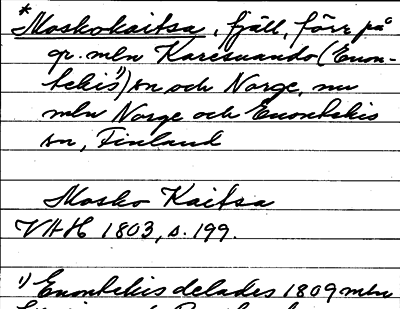 *Moskokaitsa, fjäll, förr på
gr. mln Karesuando (Enon-
tekis¹⁾) sn och Norge, nu
mln Norge och Enontekis
sn, Finland
Mosko Kaitsa
VAH 1803, s. 199.
¹⁾ Enontekis delades 1809 mln